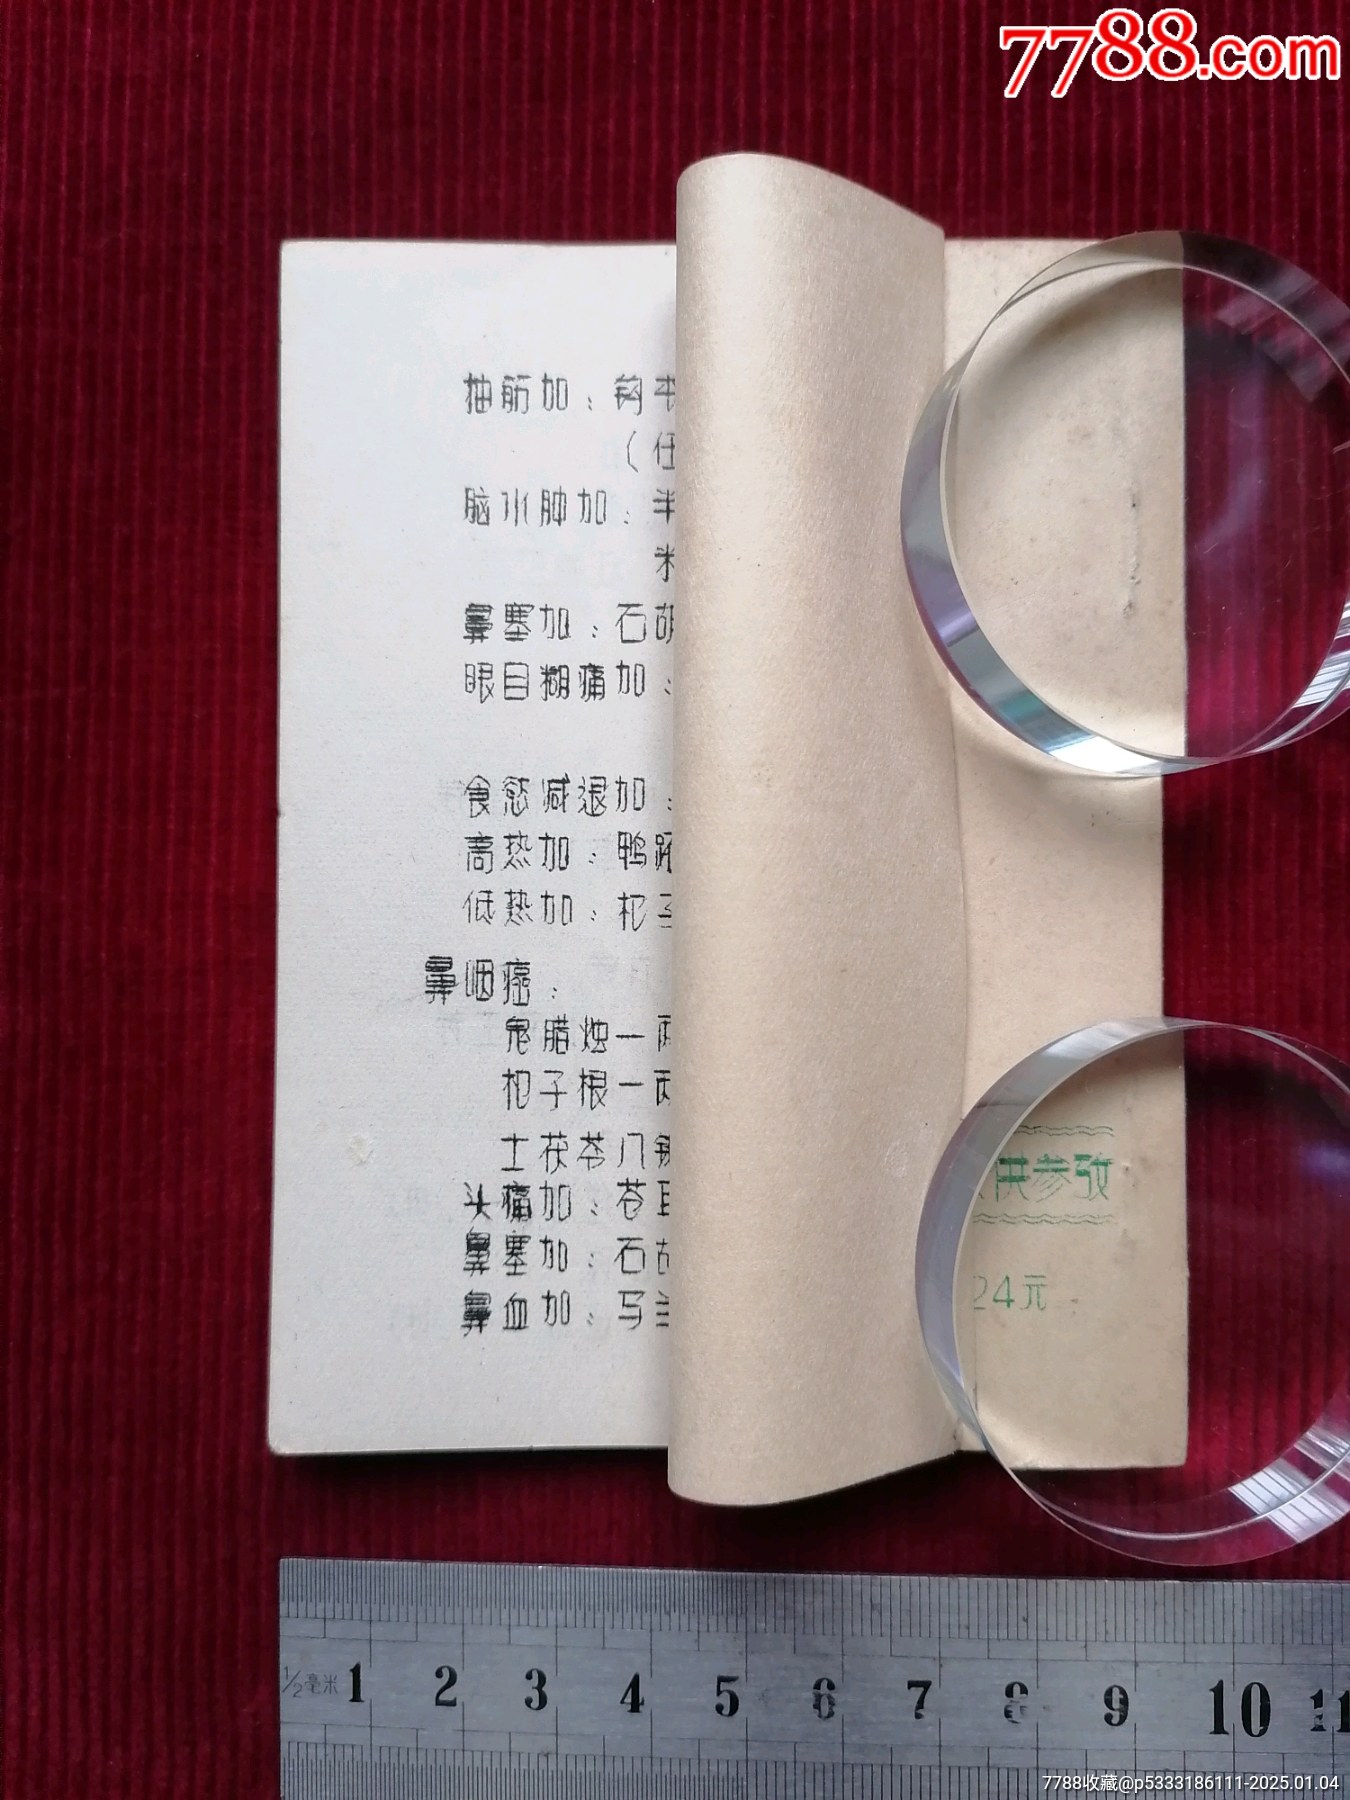 7788.com
抽筋加：钩
（
脑水肿加：半
米
鼻塞加：石胡
眼目糊痛加：
食慾减退加：
高热加：鸭跖
低热加：杞子
鼻咽癌：
鬼腊烛一两
杞子根一两
土茯苓八钱
头痛加：苍耳
鼻塞加：石胡
鼻血加：马兰
供参攷
24元
1/2毫米 1 2 3 4 5 6 7 8 9 10 11
7788收藏@p5333186111-2025.01.04